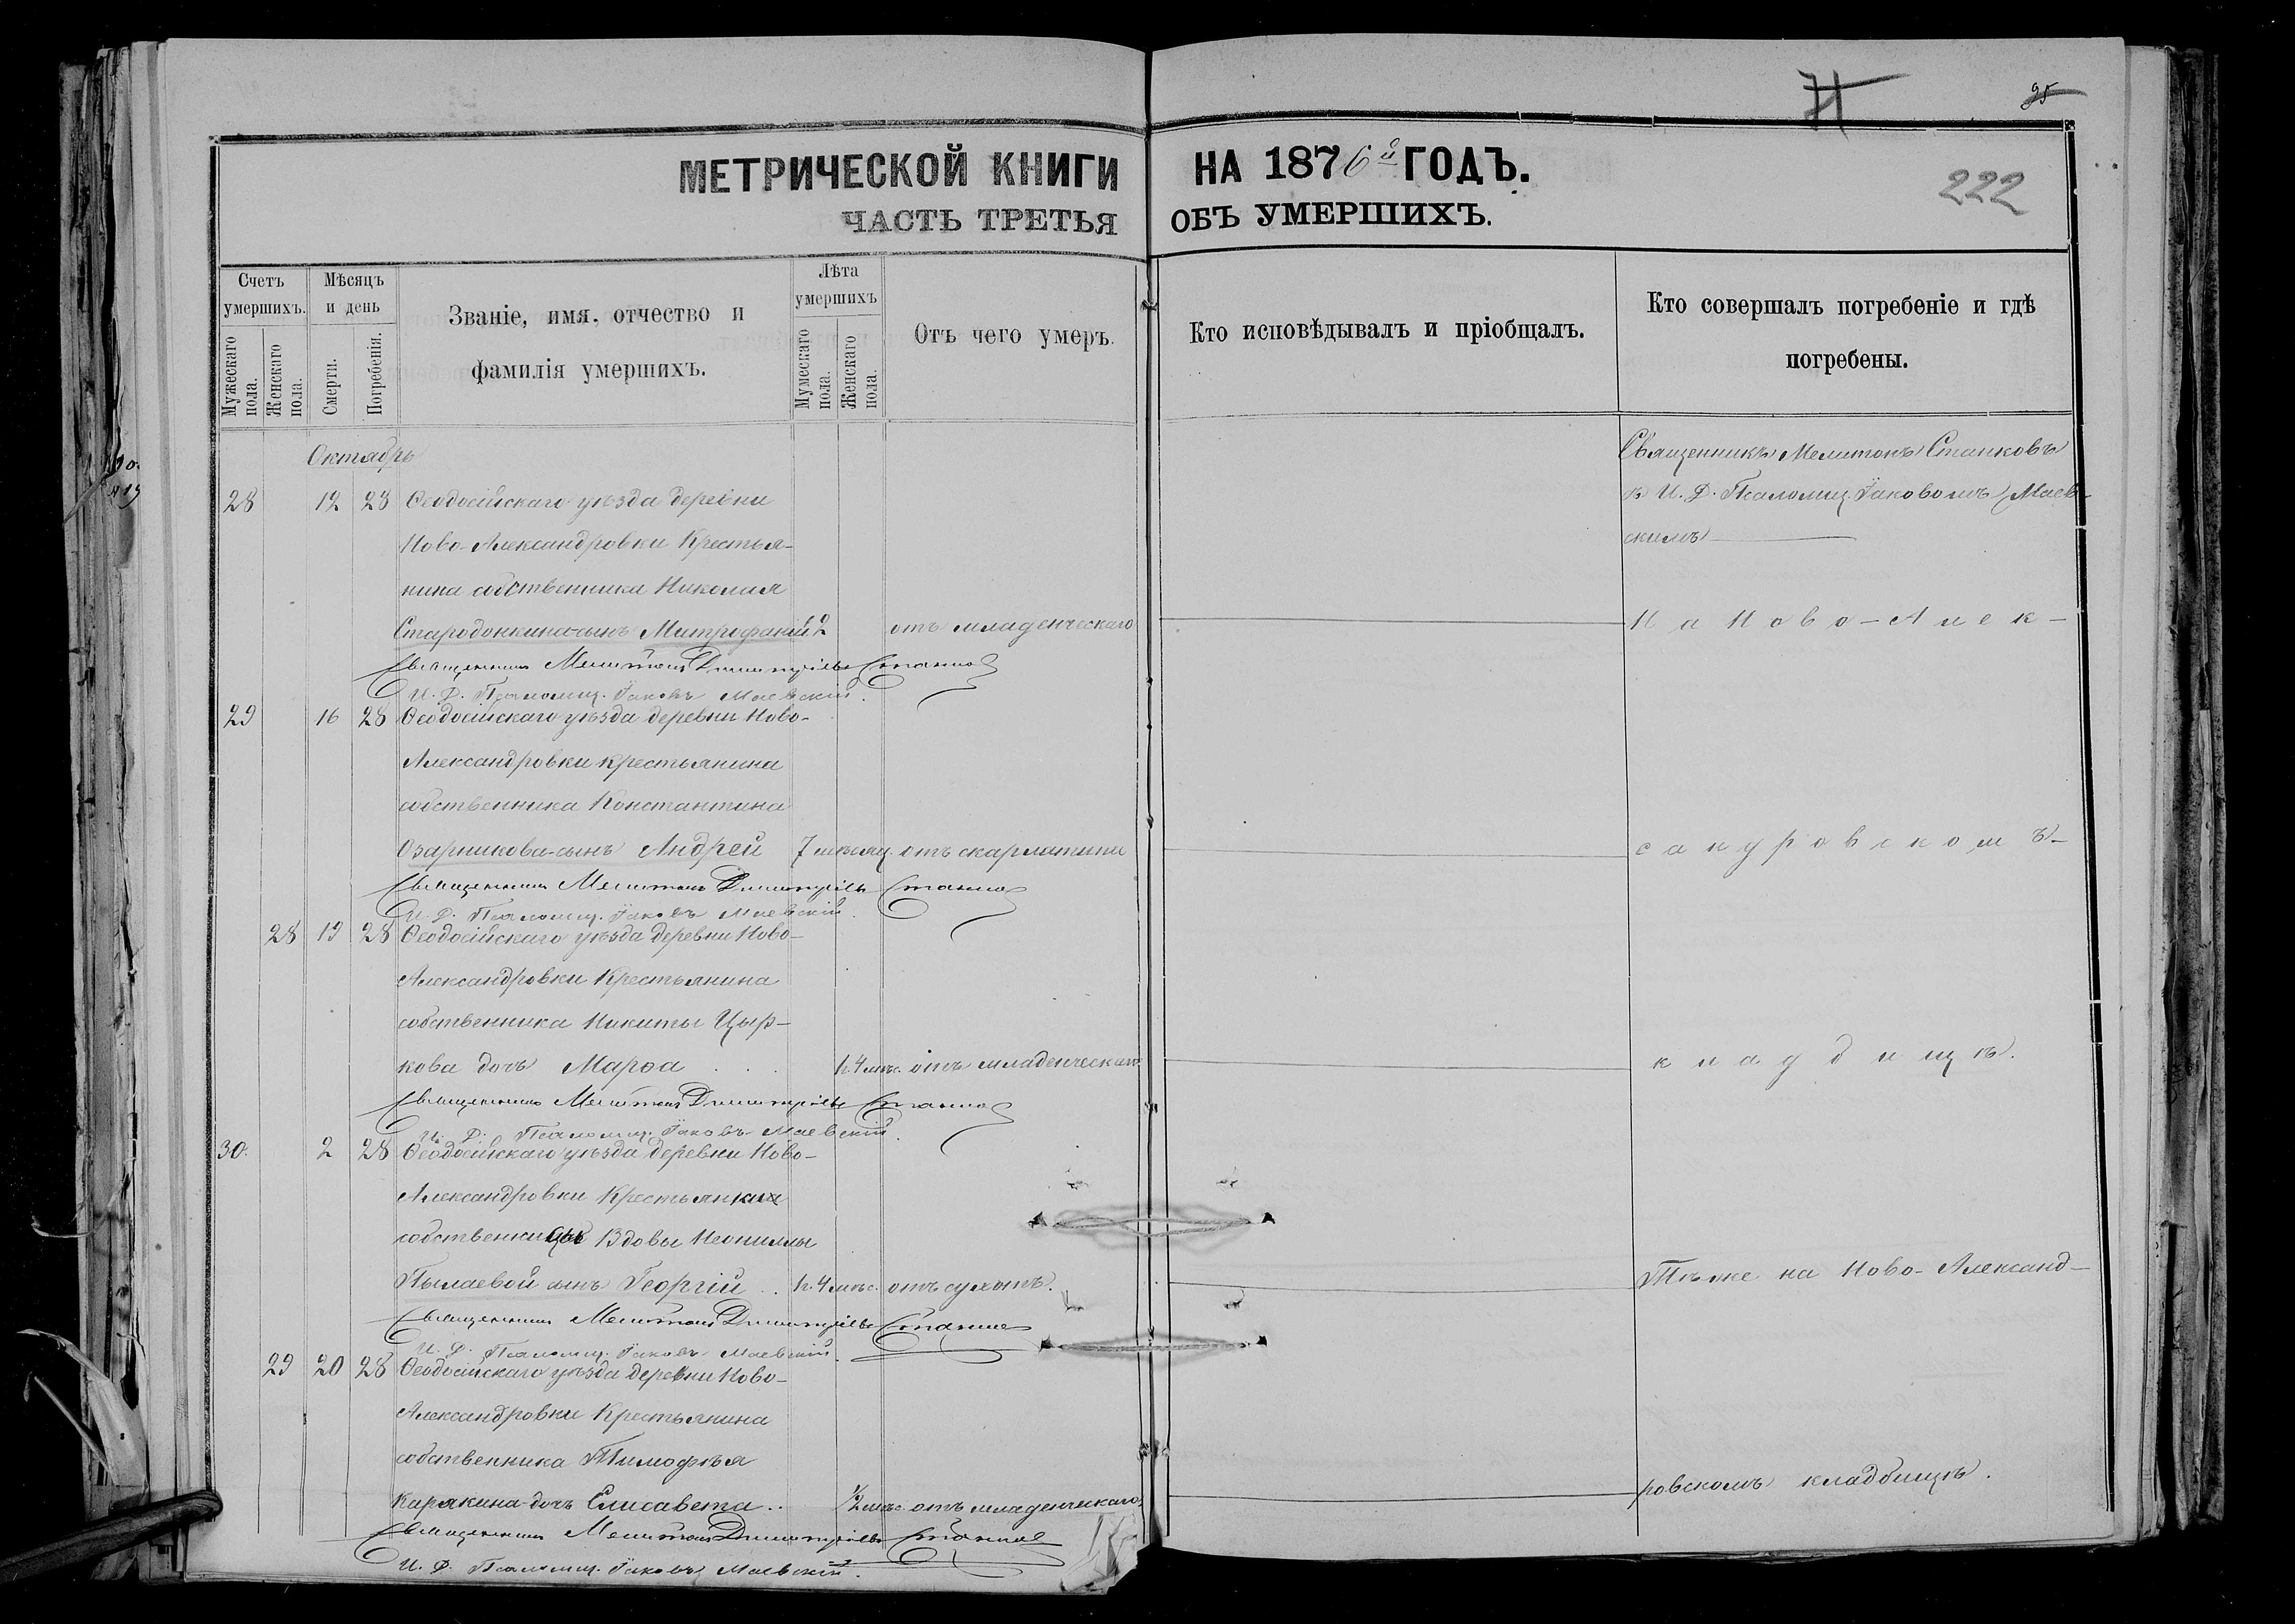 95
71
222
МЕТРИЧЕСКОЙ КНИГИ НА 1876й ГОДЪ.
ЧАСТЬ ТРЕТЬЯ ОБЪ УМЕРШИХЪ.
Счетъ умершихъ.
Мужескаго пола.
Женскаго пола.
Мѣсяцъ и день
Смерти.
Погребенія.
Званіе, имя, отчество и
фамилія умершихъ.
Лѣта умершихъ
Мужескаго пола.
Женскаго пола.
Отъ чего умеръ.
Кто исповѣдывалъ и пріобщалъ.
Кто совершалъ погребеніе и гдѣ
погребены.
Октябрь
Священникъ Мелитонъ Станковъ
28 12 28 Ѳеодосійскаго уѣзда деревни
съ И. Д. Псаломщ. Іаковомъ Маев-
Ново-Александровки Крестья-
скимъ
нина собственника Николая
Стародонкина сынъ Митрофаній 2 отъ младенческаго
На Ново-Алек-
Священникъ Мелитонъ Димитріевъ Станковъ
И. Д. Псаломщ. Іаковъ Маевскій.
29 16 28 Ѳеодосійскаго уѣзда деревни Ново-
Александровки крестьянина
собственника Константина
Озарникова сынъ Андрей 7 мѣсяц. отъ скарлатины
сандровскомъ-
Священникъ Мелитонъ Димитріевъ Станковъ
И. Д. Псаломщ. Іаковъ Маевскій.
28 19 28 Ѳеодосійскаго уѣзда деревни Ново-
Александровки Крестьянина
собственника Никиты Цыр-
кова дочь Марѳа 1 г. 4 мѣс. отъ младенческаго
кладбищѣ.
Священникъ Мелитонъ Димитріевъ Станковъ
И. Д. Псаломщ. Іаковъ Маевскій.
30. 2 28 Ѳеодосійскаго уѣзда деревни Ново-
Александровки Крестьянки
собственницы Вдовы Неониллы
Пылаевой сынъ Георгій 1 г. 4 мѣс. отъ сухотъ.
Тѣмже на Ново-Александ-
Священникъ Мелитонъ Димитріевъ Станковъ
И. Д. Псаломщ. Іаковъ Маевскій.
29 20 28 Ѳеодосійскаго уѣзда деревни Ново-
Александровки Крестьянина
собственника Тимофѣя
Карякина дочь Елисавета 1/2 мѣс. отъ младенческаго
ровскомъ кладбищѣ.
Священникъ Мелитонъ Димитріевъ Станковъ
И. Д. Псаломщ. Іаковъ Маевскій.